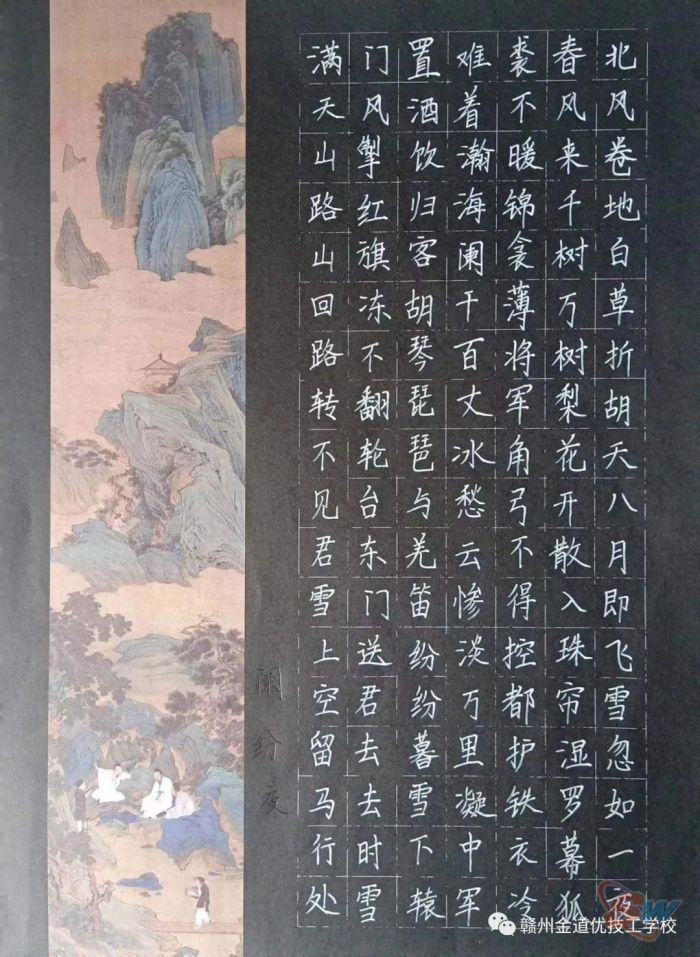 北风卷地白草折胡天八月即飞雪忽如一夜
春风来千树万树梨花开散入珠帘湿罗幕狐
裘不暖锦衾薄将军角弓不得控都护铁衣冷
难着瀚海阑干百丈冰愁云惨淡万里凝中军
置酒饮归客胡琴琵琶与羌笛纷纷暮雪下辕
门风掣红旗冻不翻轮台东门送君去去时雪
满天山路山回路转不见君雪上空留马行处
阑纷夜
赣州金道优技工学校